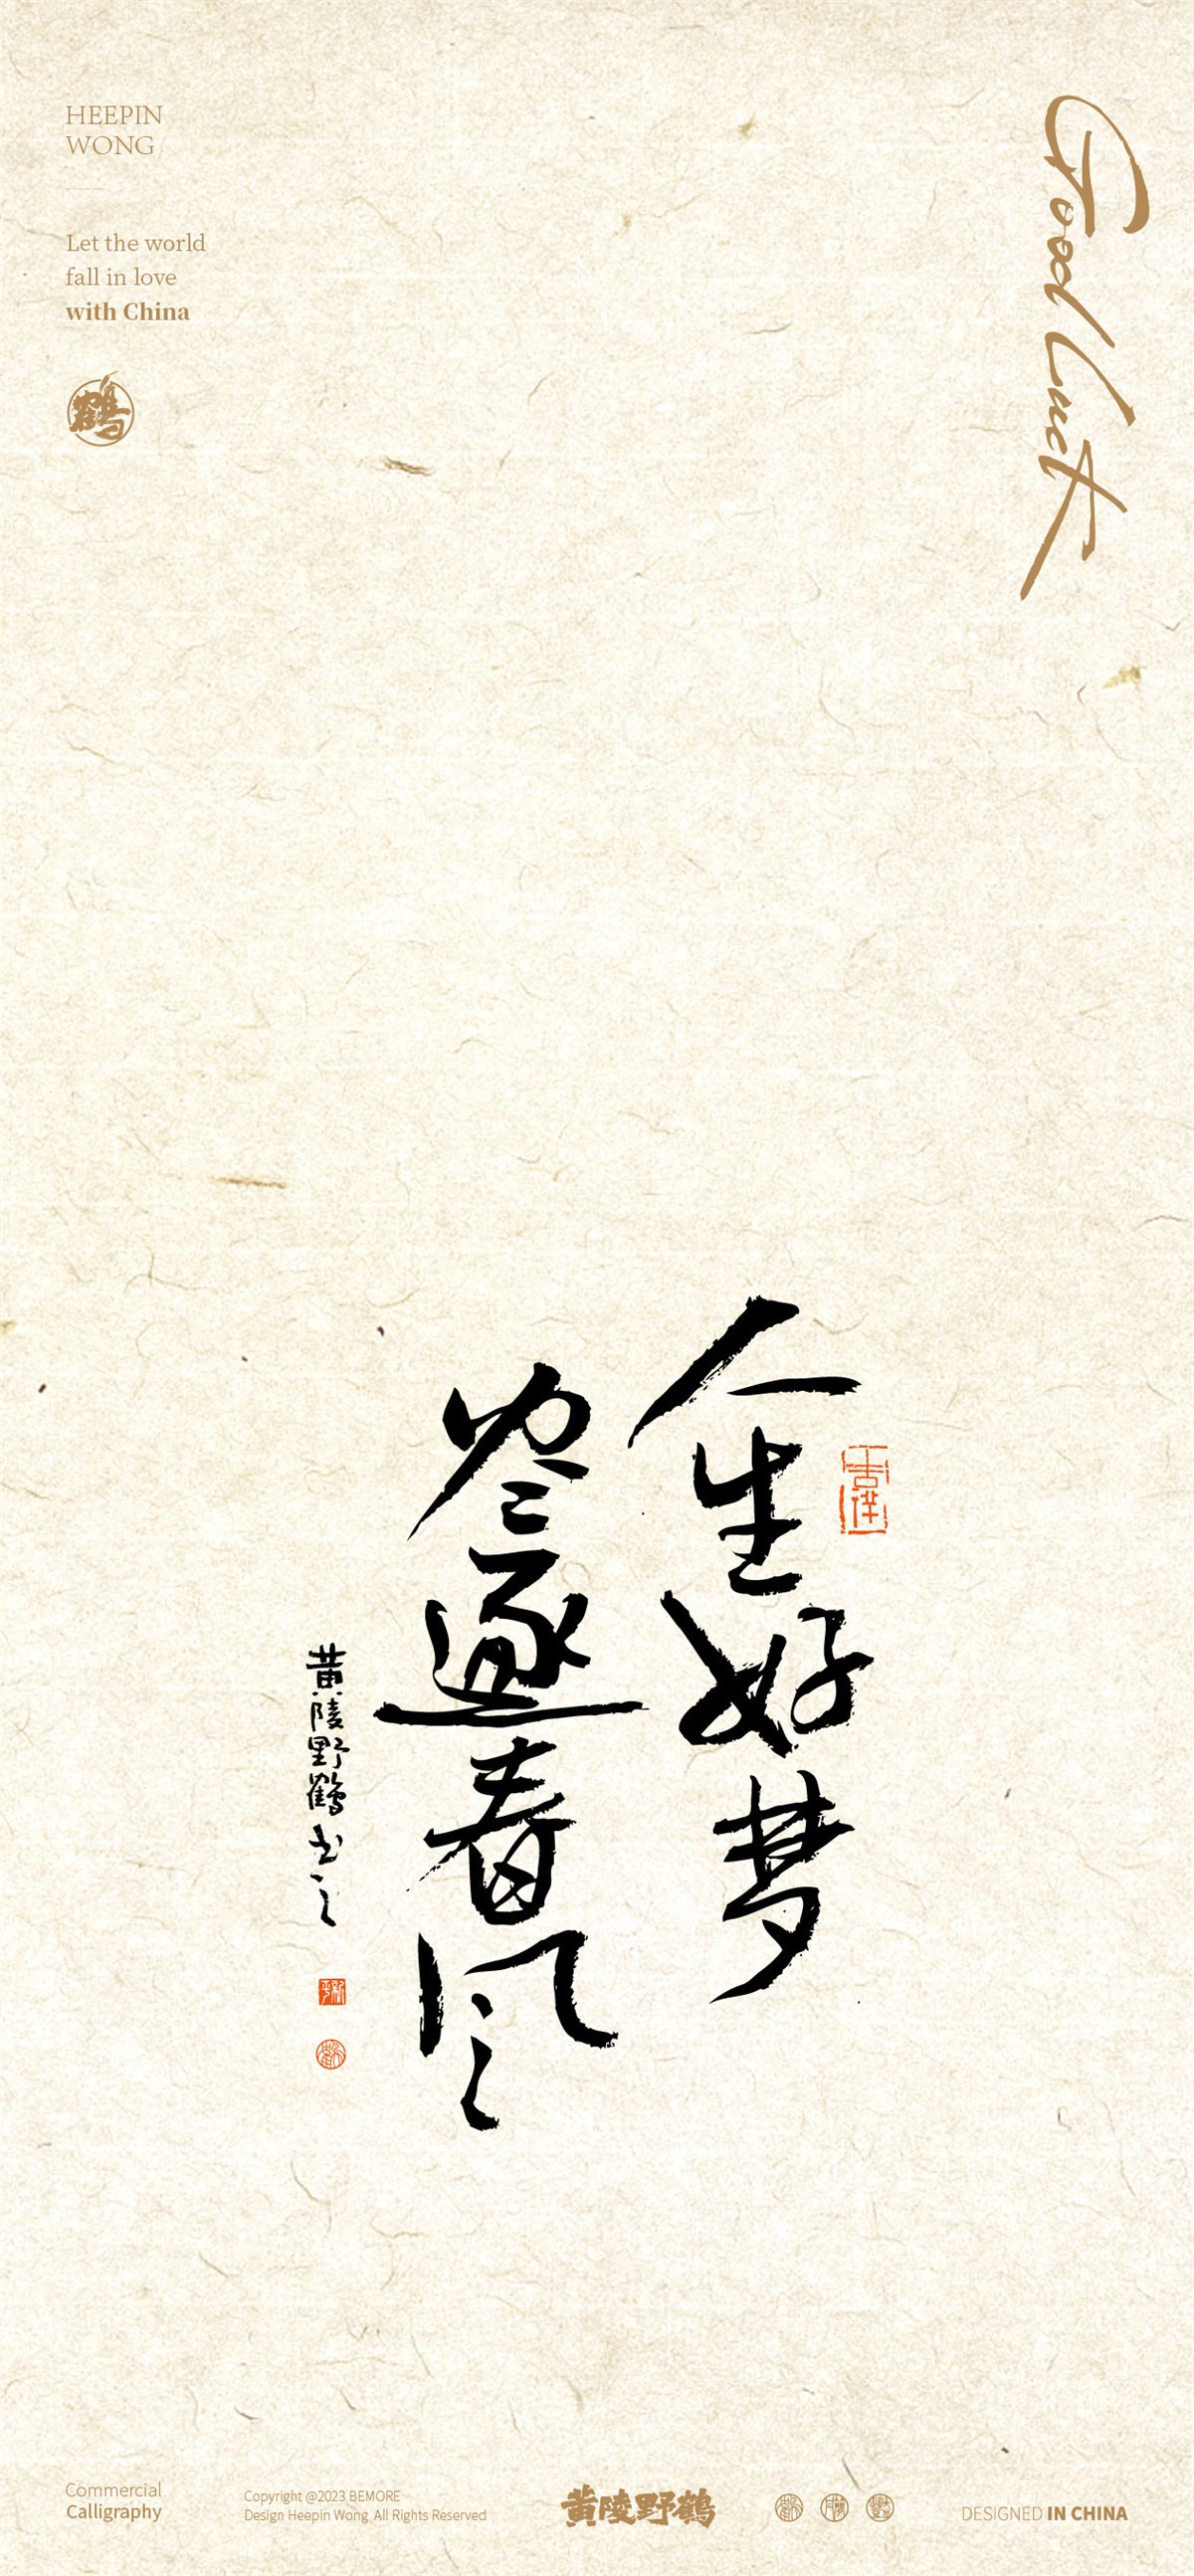 HEEPIN
WONG
Let the world
fall in love
with China
鹤
Good luck
人生好梦
尽逐春风
黄陵野鹤书之
Commercial
Calligraphy
Copyright @2023 BEMORE
Design Heepin Wong All Rights Reserved
黄陵野鹤
DESIGNED IN CHINA